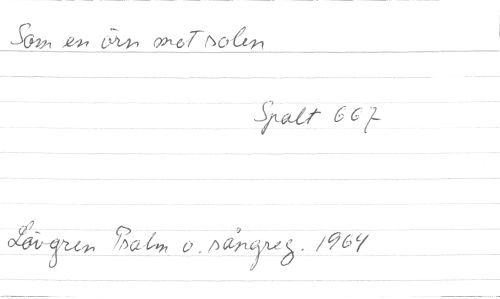 Som en örn mot solen
Spalt 667
Lövgren Psalm o. sångreg. 1964